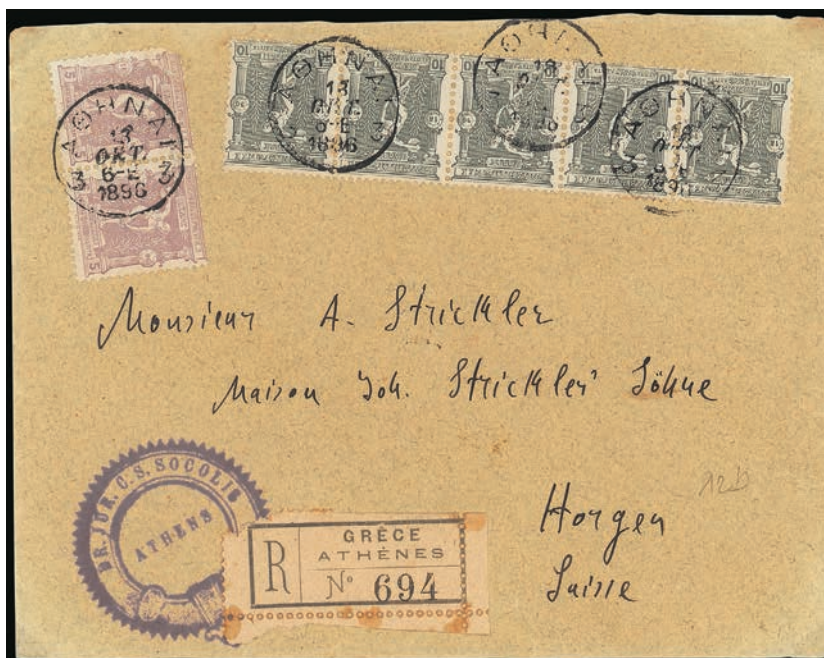 ΑΘΗΝΑΙ 3
13
ΟΚΤ.
6-Ε
1896
5
5
ΑΘΗΝΑΙ 3
13
ΟΚΤ.
6-Ε
1896
10
10
10
10
10
Monsieur A. Strickler
Maison Joh. Strickler' Söhne
Horgen
Suisse
DR. JUR. C. S. SOCOLIS
ATHENS
R
GRÈCE
ATHÈNES
N° 694